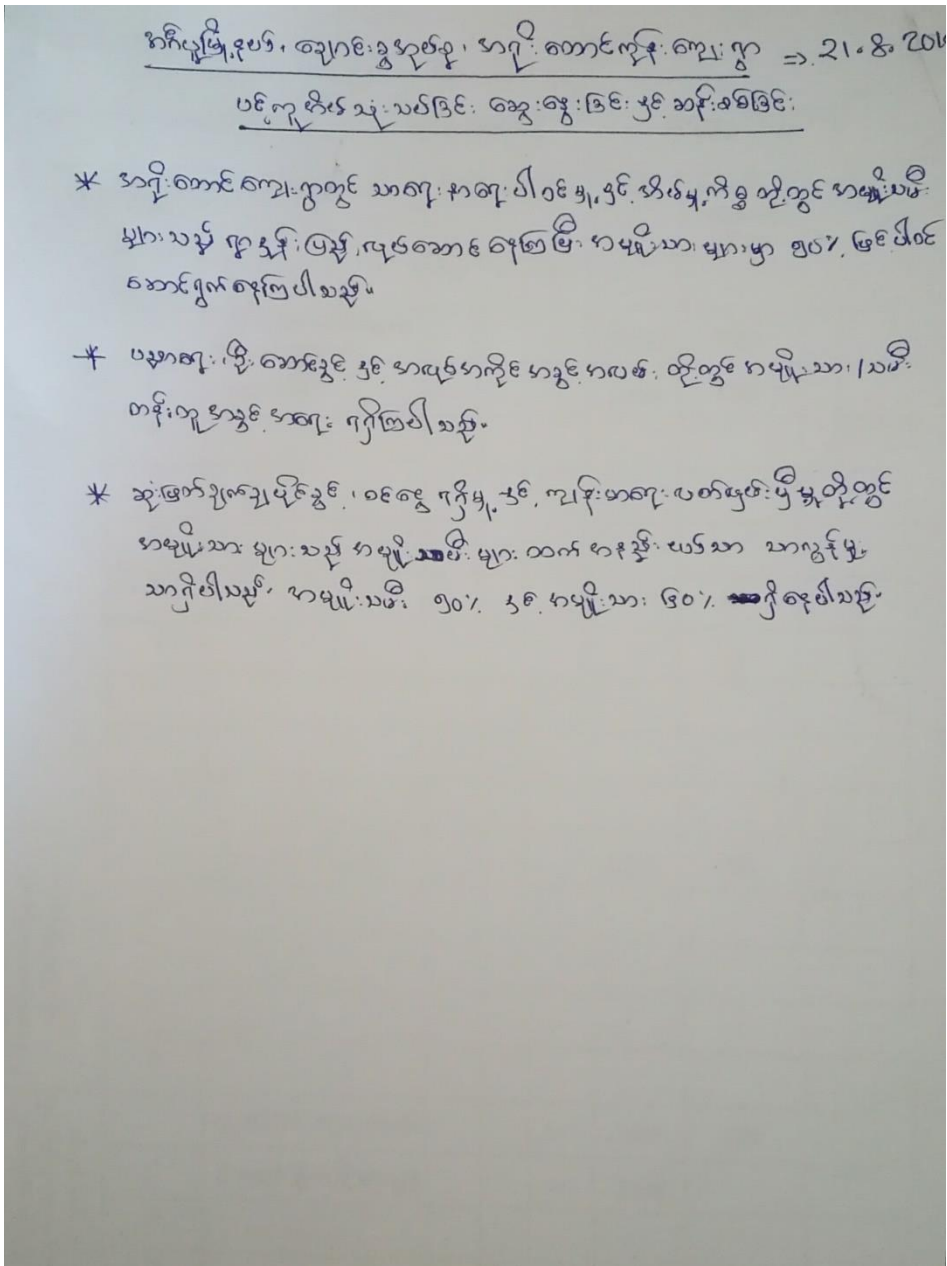 အင်္ဂပူမြို့နယ်၊ ချောင်းခွအုပ်စု၊ အရိုးတောင်ကုန်းကျေးရွာ ⇒ 21.8.201
ပင့်ကူအိမ်သုံးသပ်ခြင်း ဆွေးနွေးခြင်းနှင့် ဆန်းစစ်ခြင်း
* အရိုးတောင်ကျေးရွာတွင် သာရေးနာရေးပါဝင်မှုနှင့် အိမ်မှုကိစ္စတို့တွင် အမျိုးသမီး
များသည် ရာနှုန်းပြည့်လုပ်ဆောင်နေကြပြီး အမျိုးသားများမှာ ၅၀% ဖြင့်ပါဝင်
ဆောင်ရွက်နေကြပါသည်။
* ပညာရေး၊ ဦးဆောင်ခွင့်နှင့် အလုပ်အကိုင်အခွင့်အလမ်းတို့တွင် အမျိုးသား/သမီး
တန်းတူအခွင့်အရေး ရရှိကြပါသည်။
* ဆုံးဖြတ်ချက်ချပိုင်ခွင့်၊ ဝင်ငွေရရှိမှုနှင့် ကျန်းမာရေးလက်လှမ်းမှီမှုတို့တွင်
အမျိုးသားများသည် အမျိုးသမီးများထက် အနည်းငယ်သာ သာလွန်မှု
သာရှိပါသည်။ အမျိုးသမီး ၅၀% နှင့် အမျိုးသား ၆၀% ရှိနေပါသည်။